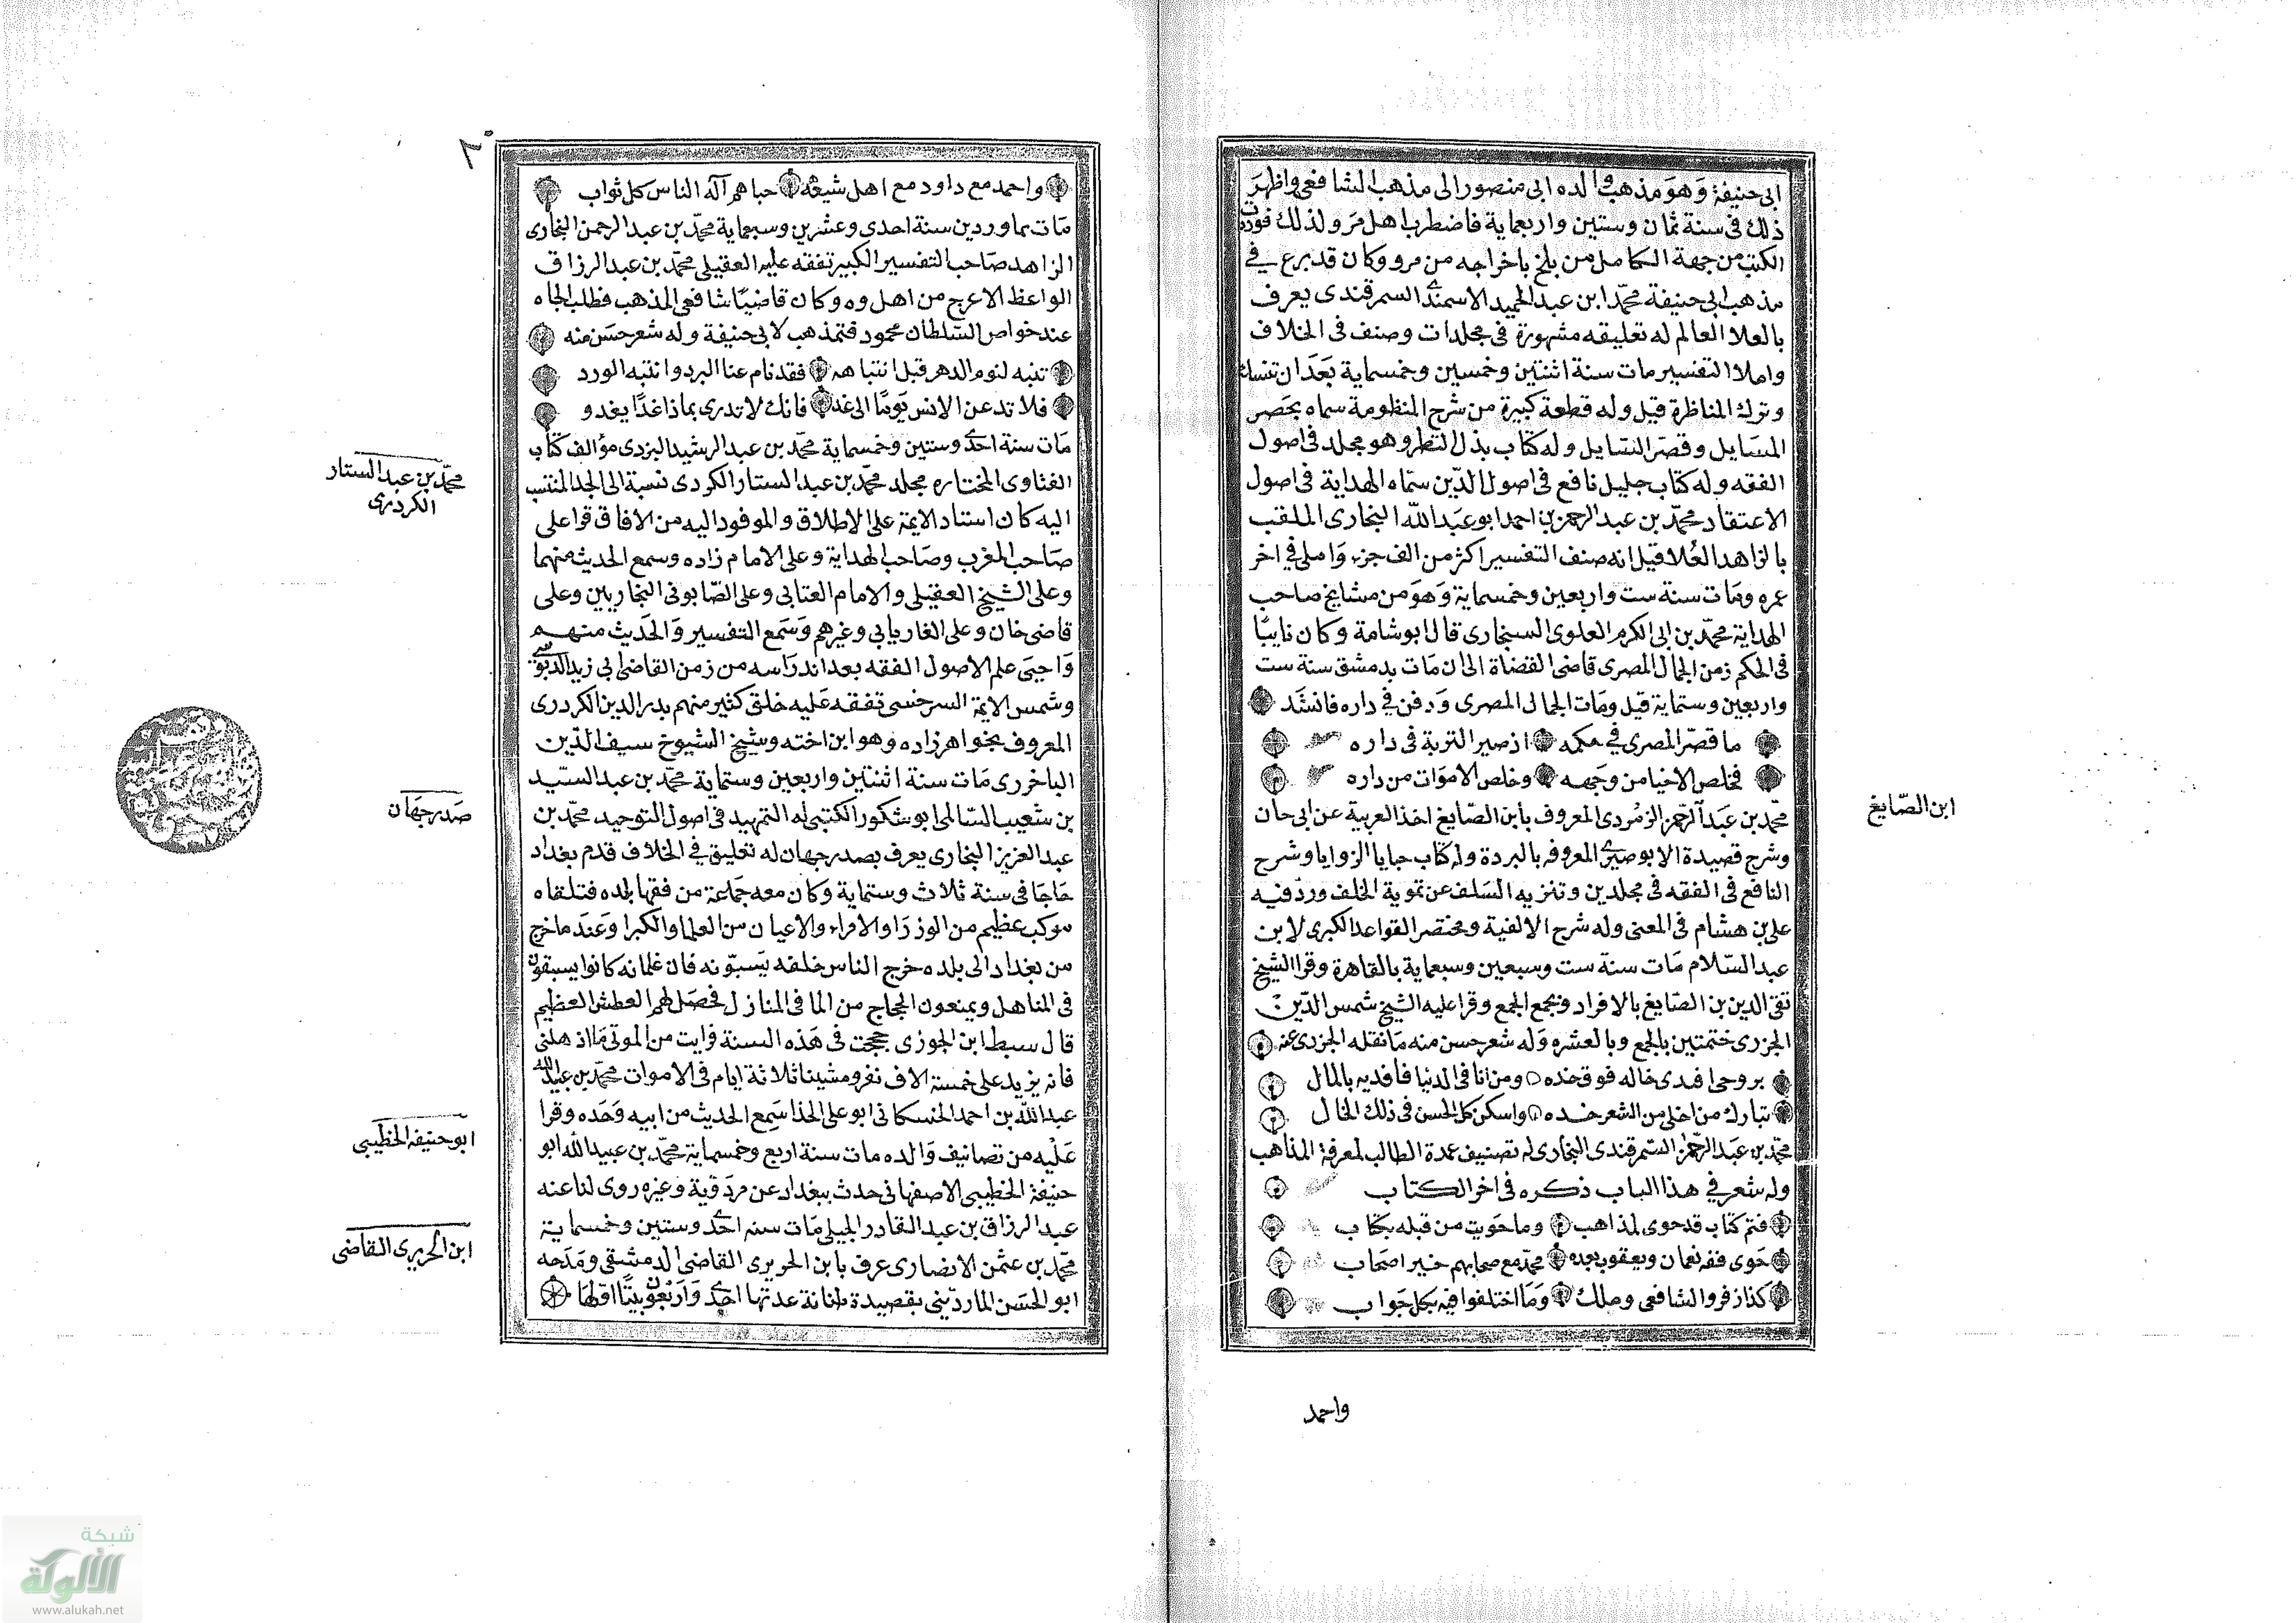 ابى حنيفة وَهوَ مذهب والده ابى منصور الى مذهب الشافعى واظهرَ
ذلك فى سنة ثمان وستين واربعماية فاضطرب اهل مَرو لذلك فوردت
الكتب من جهة الكامل من بلخ باخراجه من مرو وكان قد برع فى
مذهب ابى حنيفة محمّد ابن عبد الحميد الاسمندى السمرقندى يعرف
بالعلا العالم له تعليقه مشهورة فى مجلدات وصنف فى الخلاف
واملا التفسير مات سنة اثنتين وخمسين وخمسماية بَعدَ ان تنسك
وترك المناظرة قيل وله قطعة كبيرة من شرح المنظومة سماه بحَصر
المسَايل وقصَر السَايل وله كتاب بذل النظر وهو مجلد فى اصول
الفقه وله كتاب جليل نافع فى اصول الدّين سمّاه الهداية فى اصول
الاعتقاد محمّد بن عبد الرحمن بن احمد ابو عبَد الله البخارى الملقب
بالزاهد العُلا قيل انه صنف التفسير اكثر من الف جزء وَاملى فى اخر
عمره ومَات سنة ست واربعين وخمسماية وَهوَ من مشايخ صاحب
الهداية محمّد بن ابى الكرم العلوى السنجارى قال ابو شامة وكان نايبًا
فى الحكم زمن الجمال المصرى قاضى القضاة الى ان مَات بدمشق سنة ست
واربعين وستماية قيل ومَات الجمال المصرى وَدفن فى داره فانشَد
ما قصّر المصرى فى حكمه اذ صير التربة فى داره
فخلص الاحيا من وجَهه وخلص الاموَات من داره
محمّد بن عبَد الرحّمن الزمُردى المعروف بابن الصّايغ اخذ العربية عن ابى حان
وشرح قصيدة الابوصيرى المعروفه بالبردة وله كتاب خبايا الزوايا وشرح
النافع فى الفقه فى مجلدين وتنزيه السَلف عن تموية الخلف وردّ فيه
على بن هشام فى المغنى وله شرح الالفية ومختصر القواعد الكبرى لابن
عبد السّلام مَات سنة ست وسبعين وسبعماية بالقاهرة وقرا الشيخ
تقى الدين بن الصّايغ بالافراد وبجمع الجمع وقرا عليه الشيخ شمس الدّين
الجزرى ختمتين بالجمع وبالعشره وَله شعر حسن منه مَا نقله الجزرى عنه
بروحى افدى خاله فوق خده ومن انا فى الدنيا فافديه بالمال
تبارك من اخلى من الشعر خده واسكن كل الحسن فى ذلك الخال
محمّد بن عبَد الرحّمن السّمرقندى البخارى له تصنيف عمدة الطالب لمعرفة المذاهب
وله شعر فى هذا الباب ذكره فى اخر الكتاب
فتم كتاب قد حوى لمذاهب وما حَويت من قبله بكتاب
حَوى فقه نعمان ويعقوب بعده محمّد مع صحابهم خير اصحَاب
كذا زفر والشافعى وملك وَمَا اختلفوا فيه بكل جَواب
واحمد
ابن الصّايغ
واحمد مع داود مع اهل شيعة حباهم اله الناس كل ثواب
مَات بماوردين سنة احدى وعشرين وسبعماية محمّد بن عبد الرحمن البخارى
الزاهد صَاحب التفسير الكبير تفقه عليه العقيلى محمّد بن عبد الرزاق
الواعظ الاعرج من اهل وه وكان قاضيًا شافعى المذهب فطلب الجاه
عند خواص السّلطان محمود فتمذهب لابى حنيفة وله شعر حسَن منه
تنبه لنوم الدهر قبل انتباهه فقد نام عنا البرد وانتبه الورد
فلا تدعن الانس يَومًا الى غد فانك لا تدرى بماذا غدًا يغدو
مَات سنة احدى وستين وخمسماية محمّد بن عبد الرشيد البزدى مؤالف كتاب
الفتاوى المختاره مجلد محمّد بن عبد الستار الكردى نسبة الى الجد المنتسب
اليه كان استاد الايمة على الاطلاق والموفود اليه من الافاق قرا على
صَاحب المغرب وصَاحب الهداية وعلى الامام زاده وسمع الحديث منهما
وعلى الشيخ العقيلى والامام العتابى وعلى الصّابونى البخاريين وعلى
قاضى خان وعلى الفاريابى وغيرهم وَسَمع التفسير وَالحَديث منهم
وَاحيى علم الاصول الفقه بعد اندرَاسه من زمن القاضى ابى زيد الدّبوسى
وشمس الايمة السرخسى تفقه عَليه خلق كثير منهم بدر الدين الكردرى
المعروف بخواهر زاده وهو ابن اخته وشيخ الشيوخ سيف الدّين
الباخررى مَات سنة اثنتين واربعين وستماية محمّد بن عبد السّيد
بن شعيب السّالمى ابو شكور الكتبى له التمهيد فى اصول التوحيد محمّد بن
عبد العزيز البخارى يعرف بصدر جهان له تعليق فى الخلاف قدم بغداد
حَاجَا فى سنة ثلاث وستماية وَكان معه جَماعة من فقها بلده فتلقاه
موكب عظيم من الوزرَا والامراء والاعيان من العلما والكبرا وَعَند ما خرج
من بغداد الى بلده خرج الناس خلفه يَسبّونه فان غلمانه كانوا يسبقون
فى المناهل ويمنعون الحجاج من الما فى المنازل فحصَل لهم العطش العظيم
قال سبط ابن الجوزى حججت فى هَذه السنة فرايت من الموتى مَا اذهلنى
فانه يزيد على خمسة الاف نفر ومشينا ثلاثة ايام فى الاموات محمّد بن عبَيد الله
عبد الله بن احمد الحسكانى ابو على الحذا سَمع الحديث من ابيه وَجَده وقرا
عَليْه من تصانيف وَالده مات سنة اربع وخمسماية محمّد بن عبيد الله ابو
حنيفة الخطيبى الاصفهانى حدث ببغداد عن مردَوية وغيره روى لنا عنه
عبد الرزاق بن عبد القادر الجيلى مَات سنه احدى وستين وخمسماية
محمّد بن عثمن الانصارى عرف بابن الحريرى القاضى الدمشقى ومَدَحه
ابو الحسَن الماردّينى بقصيدة طنانة عدتها احدى وَاربَعون بيتًا اولها
محمّد بن عبد الستار
الكردرى
صَدر جهَان
ابو حنيفه الخطَيبى
ابن الحريرى القاضى
شبكة
الألوكة
www.alukah.net